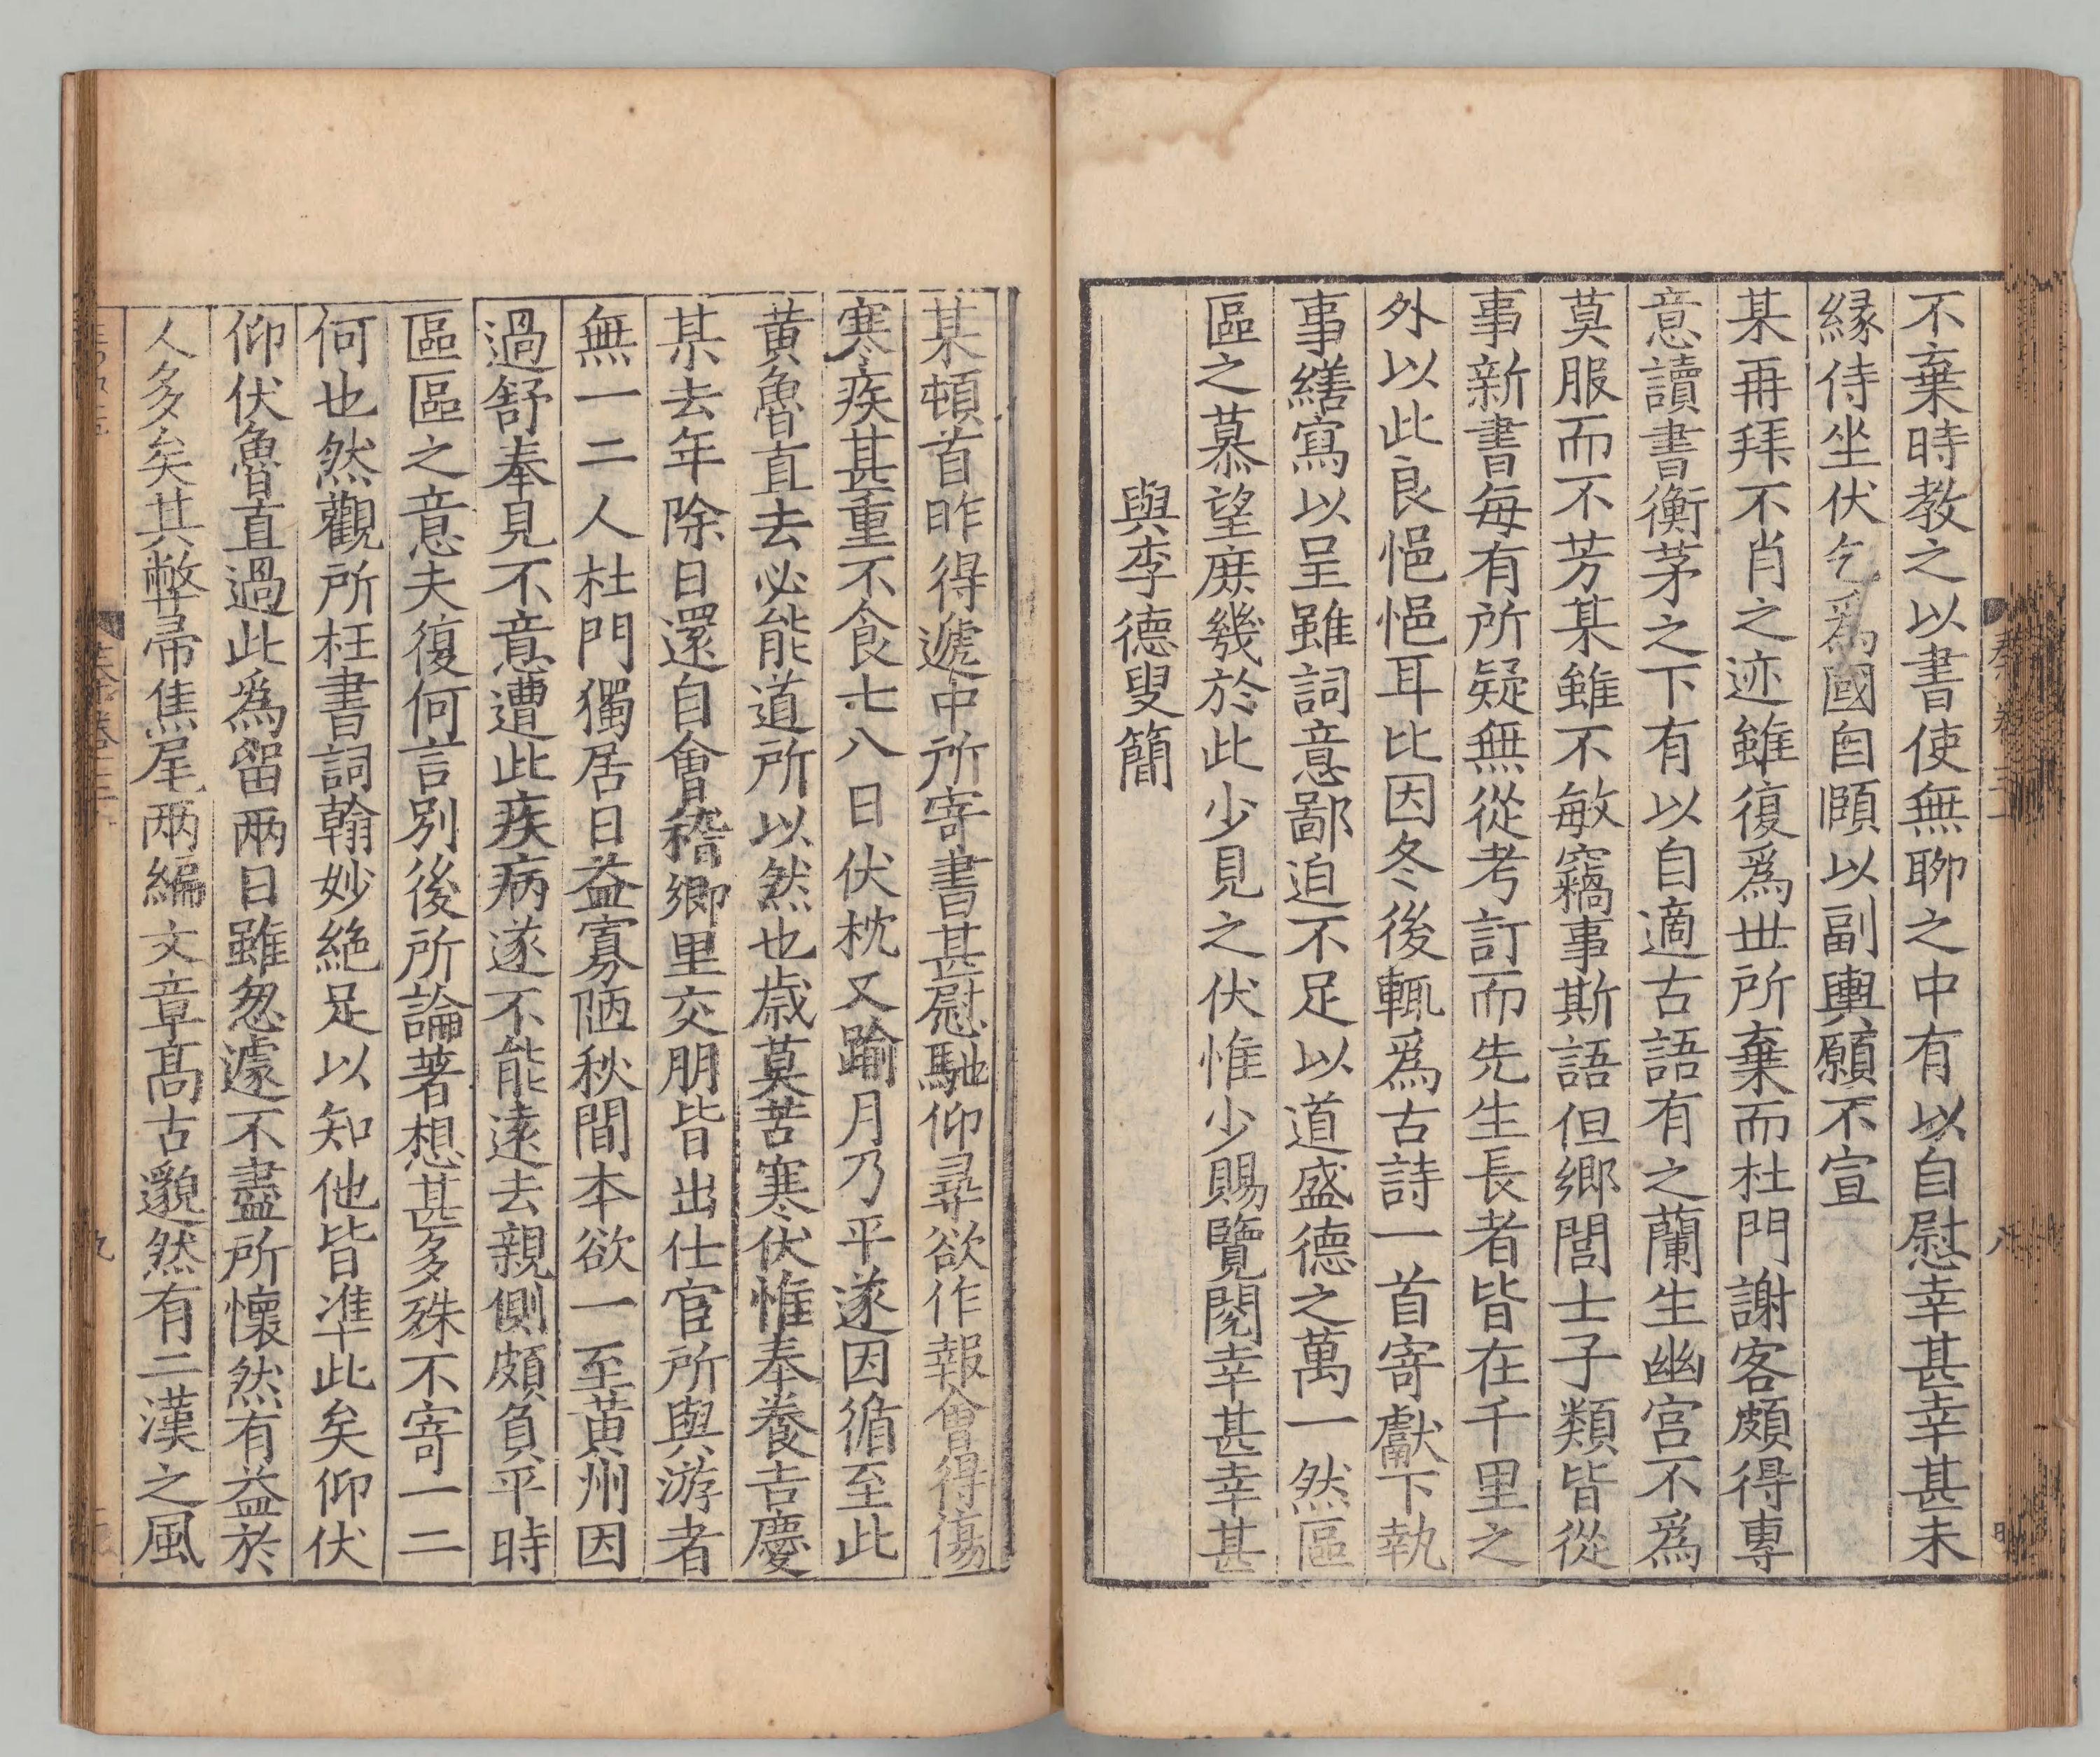 不棄時教之以書使無聊之中有以自慰幸甚幸甚未
縁侍坐伏乞爲國自頤以副輿願不宣
某再拜不肖之迹雖復爲世所棄而杜門謝客頗得專
意讀書衡茅之下有以自適古語有之蘭生幽宮不爲
莫服而不芳某雖不敏竊事斯語但鄉閭士子類皆從
事新書每有所疑無從考訂而先生長者皆在千里之
外以此良悒悒耳比因冬後輒爲古詩一首寄獻下執
事繕寫以呈雖詞意鄙迫不足以道盛德之萬一然區
區之慕望庶幾於此少見之伏惟少賜覽閱幸甚幸甚
與李德叟簡
某頓首昨得遞中所寄書甚慰馳仰尋欲作報會得傷
寒疾甚重不食七八日伏枕又踰月乃平遂因循至此
黄魯直去必能道所以然也歳莫苦寒伏惟奉養吉慶
某去年除日還自會稽鄉里交朋皆出仕官所與游者
無一二人杜門獨居日益寡陋秋間本欲一至黄州因
過舒奉見不意遭此疾病遂不能遠去親側頗負平時
區區之意夫復何言別後所論著想甚多殊不寄一二
何也然觀所枉書詞翰妙絶足以知他皆準此矣仰伏
仰伏魯直過此爲留兩日雖怱遽不盡所懷然有益於
人多矣其弊帚焦尾兩編文章高古邈然有二漢之風